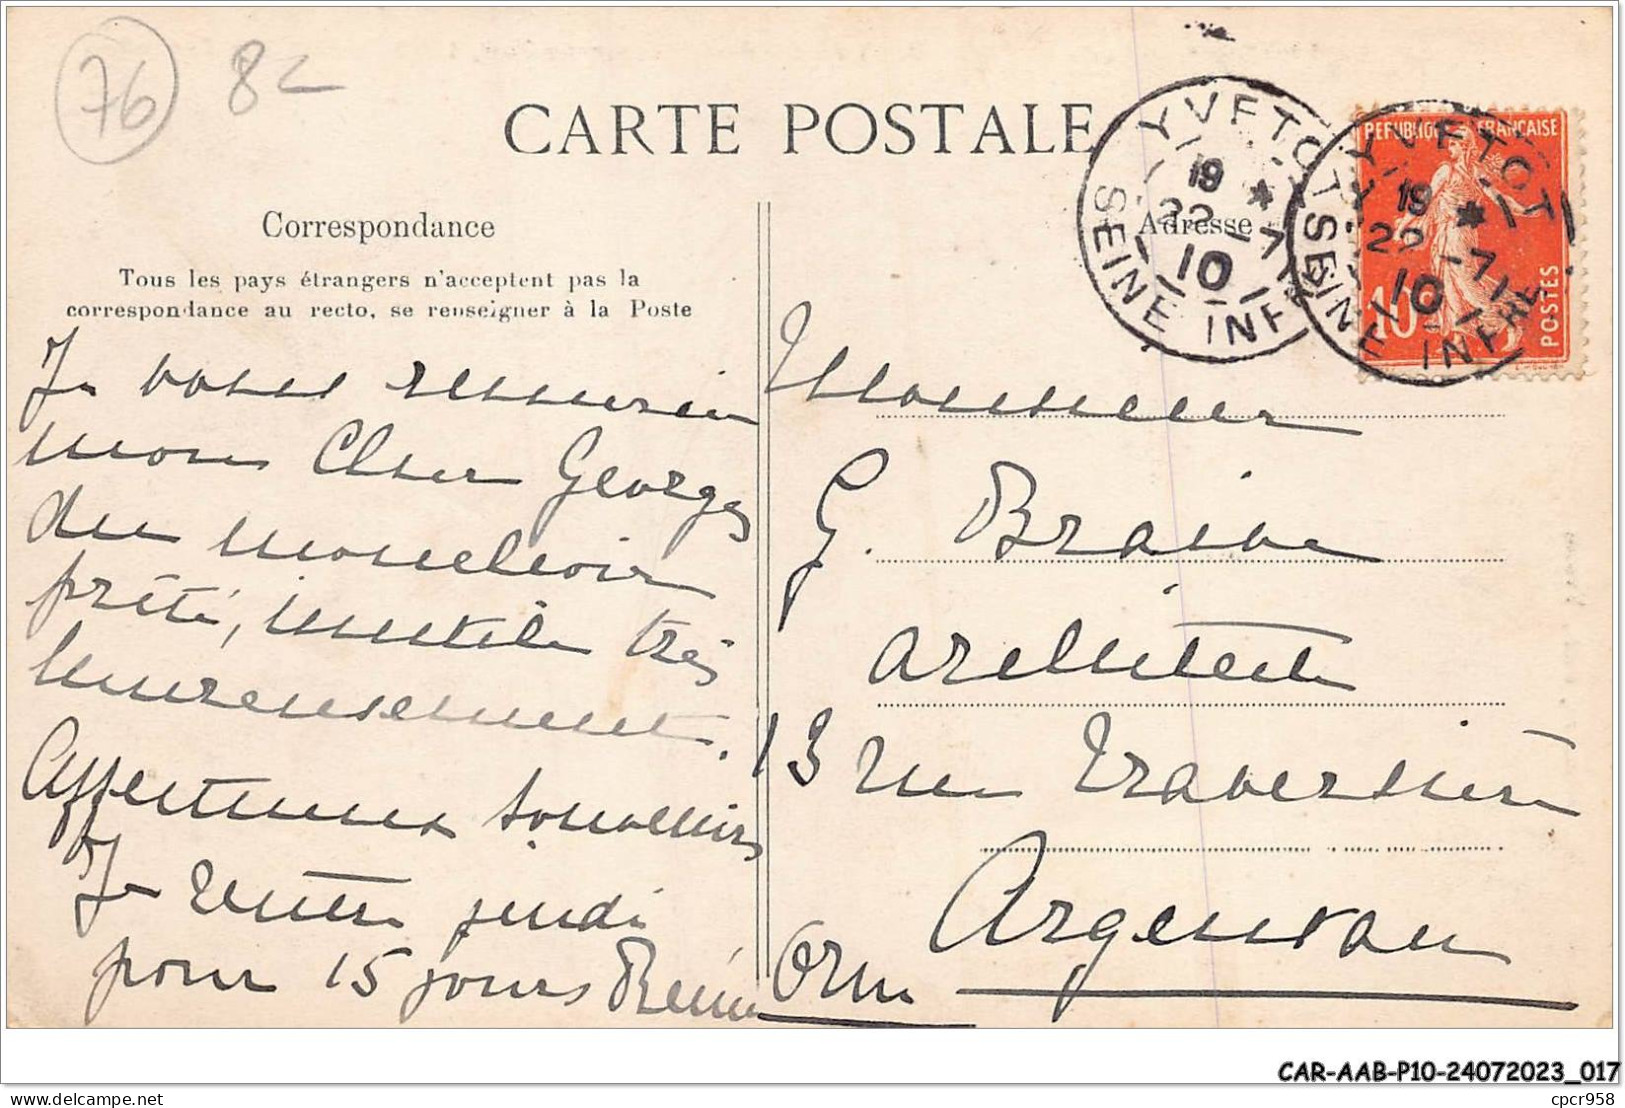 76 82
CARTE POSTALE
YVETOT
19 *
22 -7
10
SEINE INFRE
YVETOT
19 *
22 -7
10
SEINE INFRE
REPUBLIQUE FRANÇAISE
10c
POSTES
Correspondance
Adresse
Tous les pays étrangers n'acceptent pas la
correspondance au recto, se renseigner à la Poste
Je vous remercie
mon Cher Georges
du mouchoir
prêté, inutile très
heureusement.
Affectueux souvenirs
Je rentre jeudi
pour 15 jours
Monsieur
G. Braive
architecte
13 rue Traversière
Argentan
Orne
CAR-AAB-P10-24072023_017
delcampe.net
cpcr958